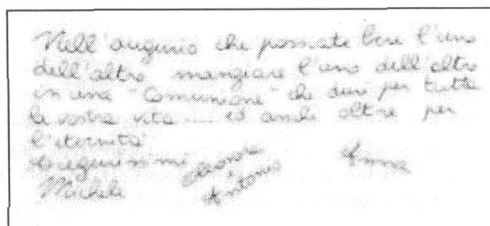 Nell'augurio che possiate bere l'uno
dell'altro mangiare l'uno dell'altro
in una "Comunione" che duri per tutta
la vostra vita .... ed anche oltre per
l'eternità
Augurissimi
Michele Eleonora e Antonio Anna